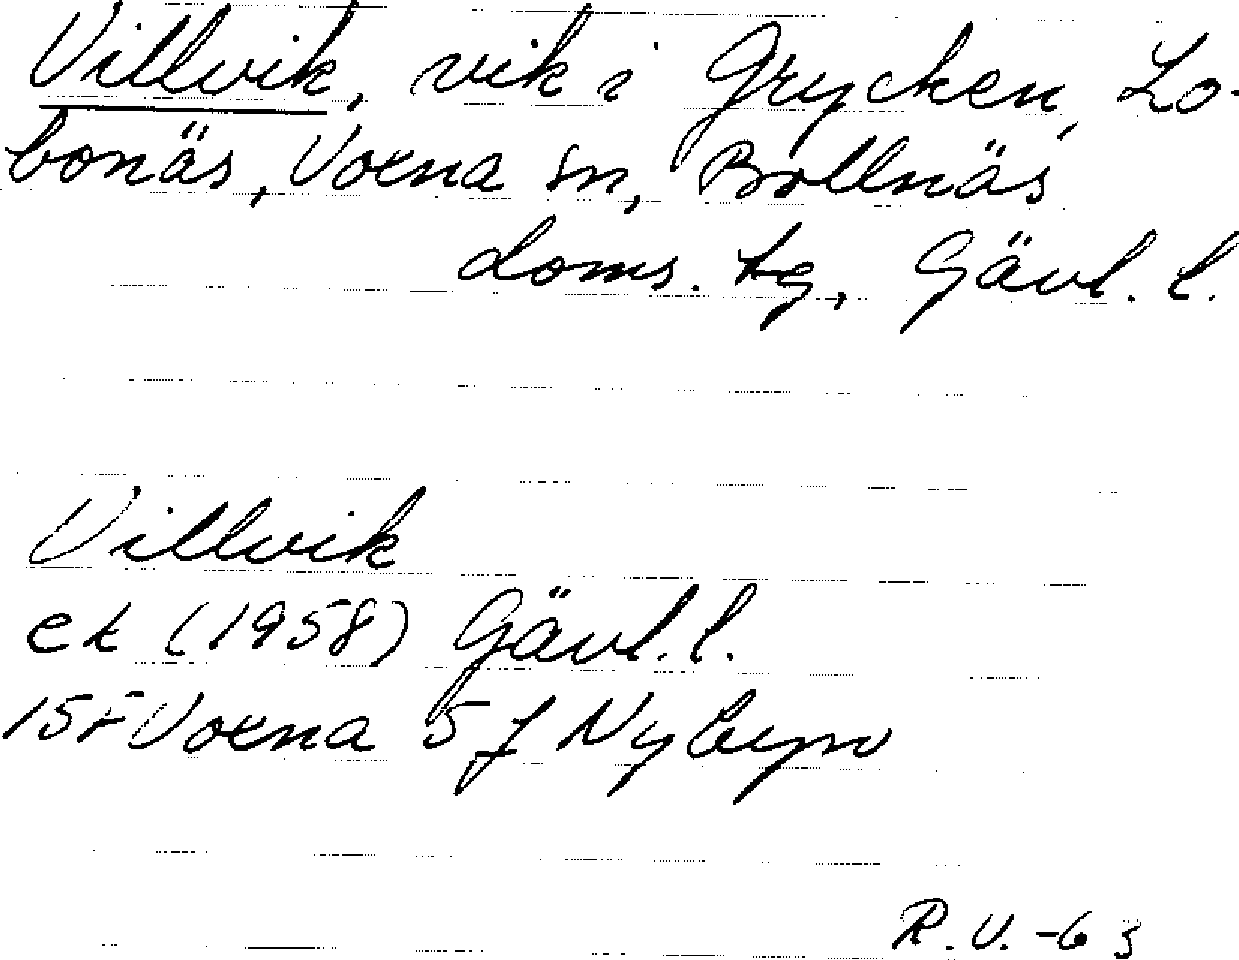 Villvik, vik i Grycken, Lo-
bonäs, Voxna sn, Bollnäs
doms. tg, Gävl. l.
Villvik
ek (1958) Gävl. l.
15F Voxna 5f Nybyn
R.V. -63